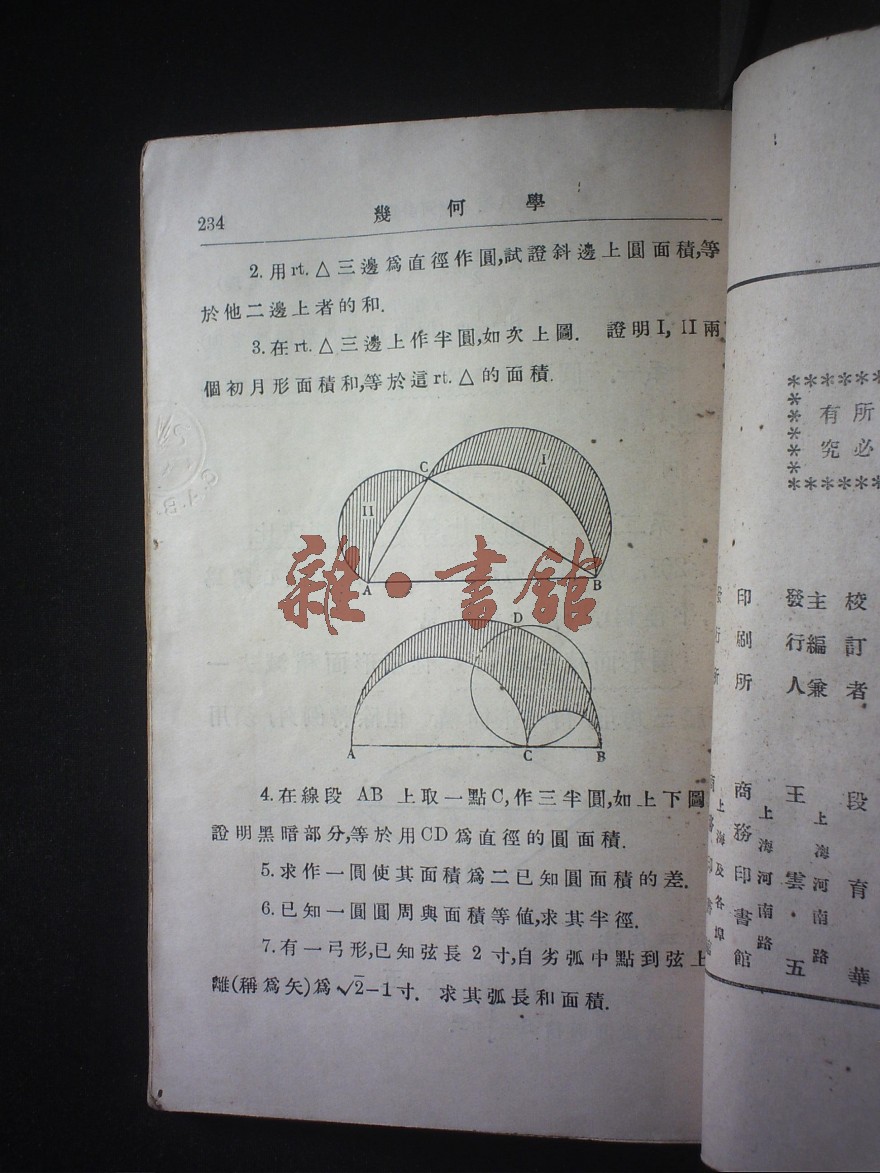 234
幾何學
2.用rt.△三邊爲直徑作圓,試證斜邊上圓面積,等
於他二邊上者的和.
3.在rt.△三邊上作半圓,如次上圖. 證明I, II兩
個初月形面積和,等於這rt.△的面積.
C
I
II
A
B
雜·書館
D
A
C
B
4.在線段 AB 上取一點C,作三半圓,如上下圖
證明黑暗部分,等於用CD爲直徑的圓面積.
5.求作一圓使其面積爲二已知圓面積的差.
6.已知一圓圓周與面積等値,求其半徑.
7.有一弓形,已知弦長 2 寸,自劣弧中點到弦上
離(稱爲矢)爲√2-1寸. 求其弧長和面積.
所必
有究
校訂者
段育華
主編兼
發行人
上海河南路
王雲五
印刷所
上海河南路
商務印書館
上海及各埠